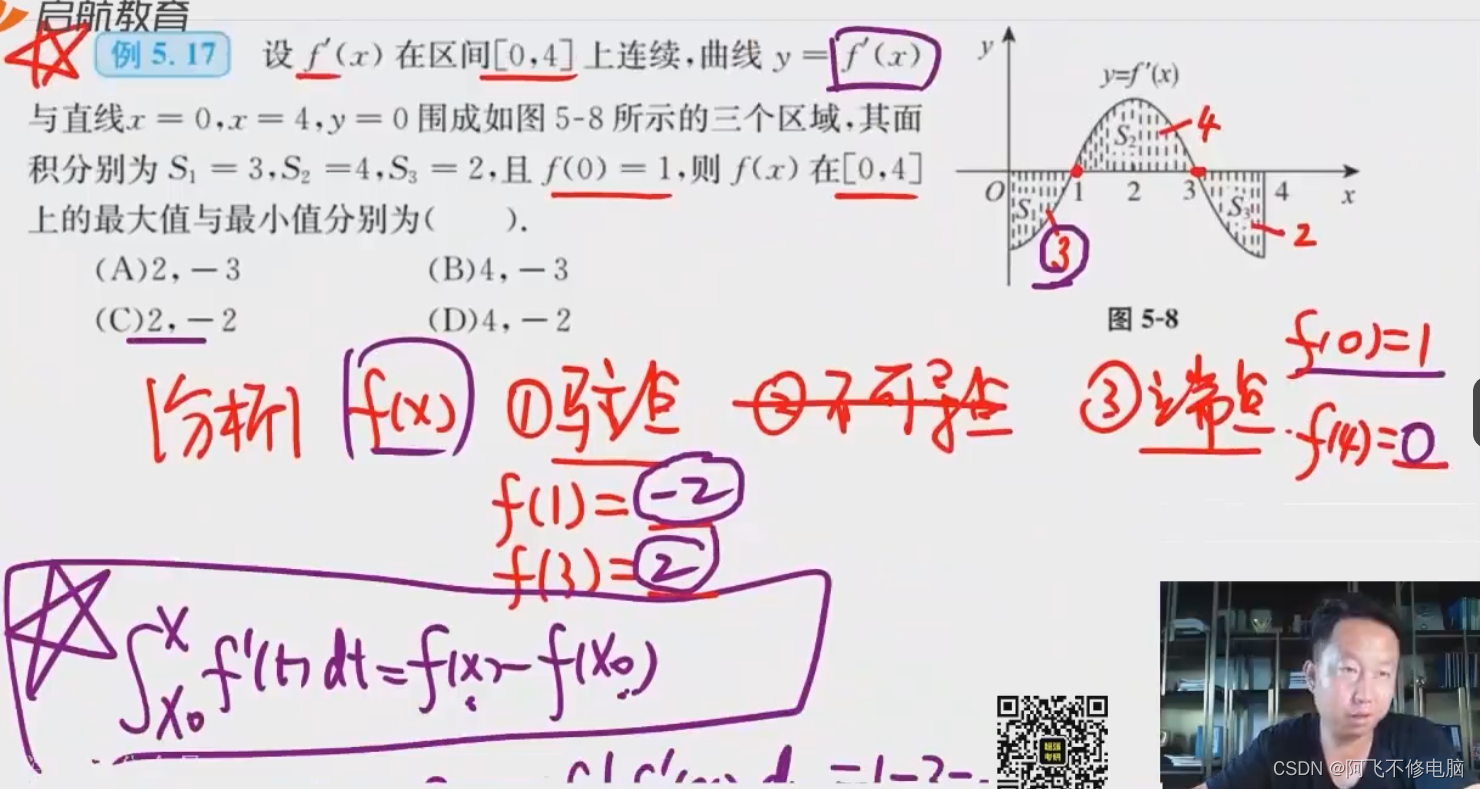 启航教育
例 5.17 设 f′(x) 在区间[0,4]上连续,曲线 y = f′(x)
与直线x = 0,x = 4,y = 0 围成如图 5-8 所示的三个区域,其面
积分别为 S₁ = 3,S₂ =4,S₃ = 2,且 f(0) = 1,则 f(x) 在[0,4]
上的最大值与最小值分别为( ).
(A)2,-3 (B)4,-3
(C)2,-2 (D)4,-2
y
y=f′(x)
S₂ 4
O 1 2 3 4 x
S₁ S₃
3 2
图 5-8
[分析] f(x) ①驻点 ②不可导点 ③端点
f(0)=1
f(4)=0
f(1)=-2
f(3)=2
∫ₓ₀ˣ f′(t)dt=f(x)-f(x₀)
CSDN @阿飞不修电脑